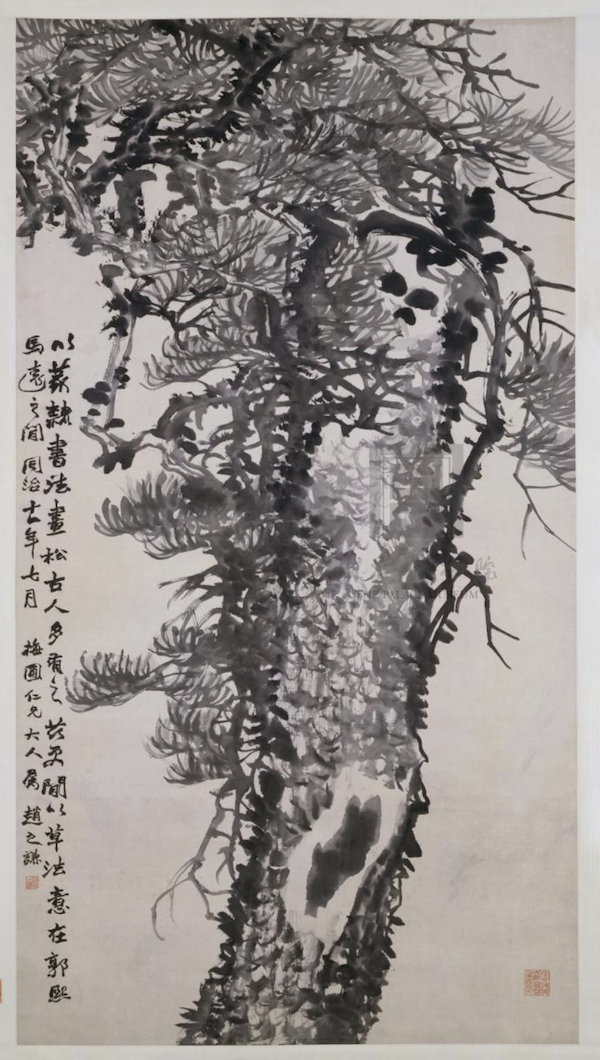 以篆隸書法畫松古人多有之茲更間以草法意在郭熙
馬遠之間同治十一年七月 梅圃仁兄大人屬 趙之謙